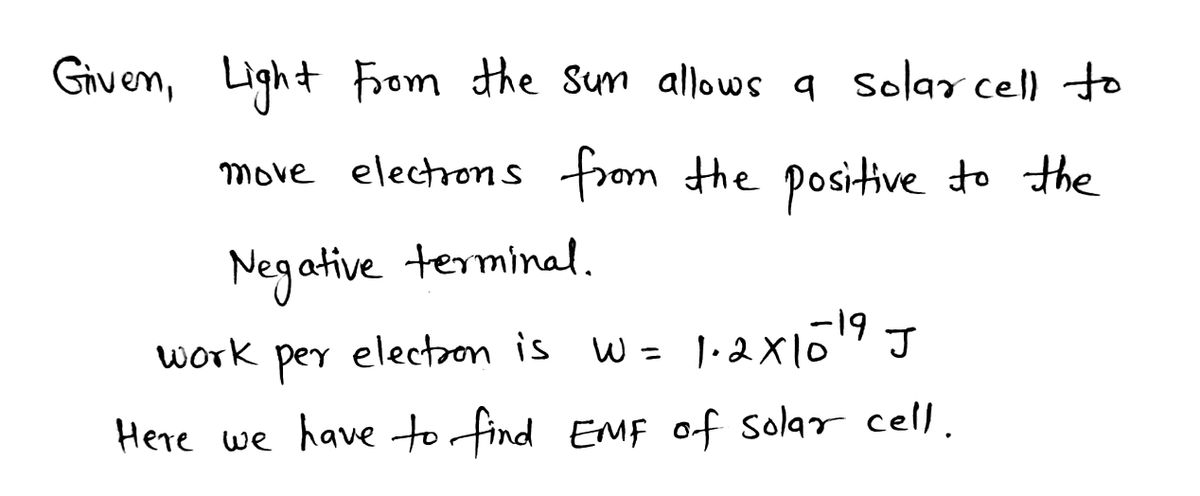 Given, Light From the Sun allows a Solar cell to
move electrons from the positive to the
Negative terminal.
work per electron is W = 1.2 X 10⁻¹⁹ J
Here we have to find EMF of solar cell.